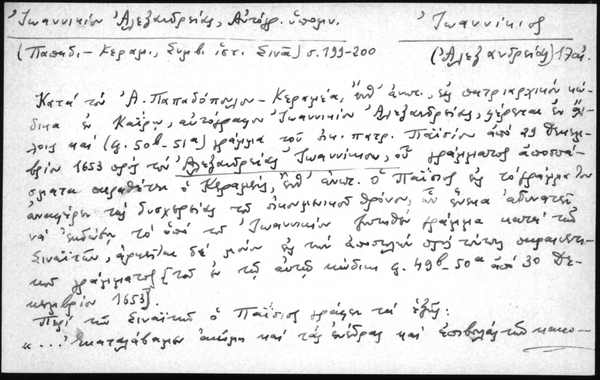 Ἰωαννικίου Ἀλεξανδρείας, Αὐτόγρ. ὑπόμν.
Ἰωαννίκιος
(Παπαδ.-Κεραμ., Συμβ. ἱστ. Σινᾶ) σ. 199-200
(Ἀλεξανδρείας) 17 αἰ.
Κατὰ τὸν Ἀ. Παπαδόπουλον-Κεραμέα, ἔνθ' ἀνωτ., εἰς πατριαρχικὸν κώ-
δικα ἐν Καΐρῳ, αὐτόγραφον Ἰωαννικίου Ἀλεξανδρείας, φέρεται ἐν φύλ-
λοις καὶ (φ. 50b-51a) γράμμα τοῦ οἰκ. πατρ. Παϊσίου ἀπὸ 29 Δεκεμ-
βρίου 1653 πρὸς τὸν Ἀλεξανδρείας Ἰωαννίκιον, οὗ γράμματος ἀποσπά-
σματα παραθέτει ὁ Κεραμεύς, ἔνθ' ἀνωτ. Ὁ Παΐσιος εἰς τὸ γράμμα του
ἀναφέρει τὰς δυσχερείας τοῦ οἰκουμενικοῦ θρόνου, ὧν ἕνεκα ἀδυνατεῖ
νὰ ἐκδώσῃ τὸ ὑπὸ τοῦ Ἰωαννικίου ζητηθὲν γράμμα κατὰ τῶν
Σιναϊτῶν, ἀρκεῖται δὲ μόνον εἰς τὴν ἀποστολὴν πρὸς τούτους παραινετι-
κοῦ γράμματος [τοῦ ἐν τῷ αὐτῷ κώδικι φ. 49b-50a ἀπὸ 30 Δε-
κεμβρίου 1653].
Περὶ τῶν Σιναϊτῶν ὁ Παΐσιος γράφει τὰ ἑξῆς:
«... Ἐκαταλάβαμεν ἀκόμη καὶ τὰς ἐνέδρας καὶ ἐπιβουλὰς τῶν κακο-